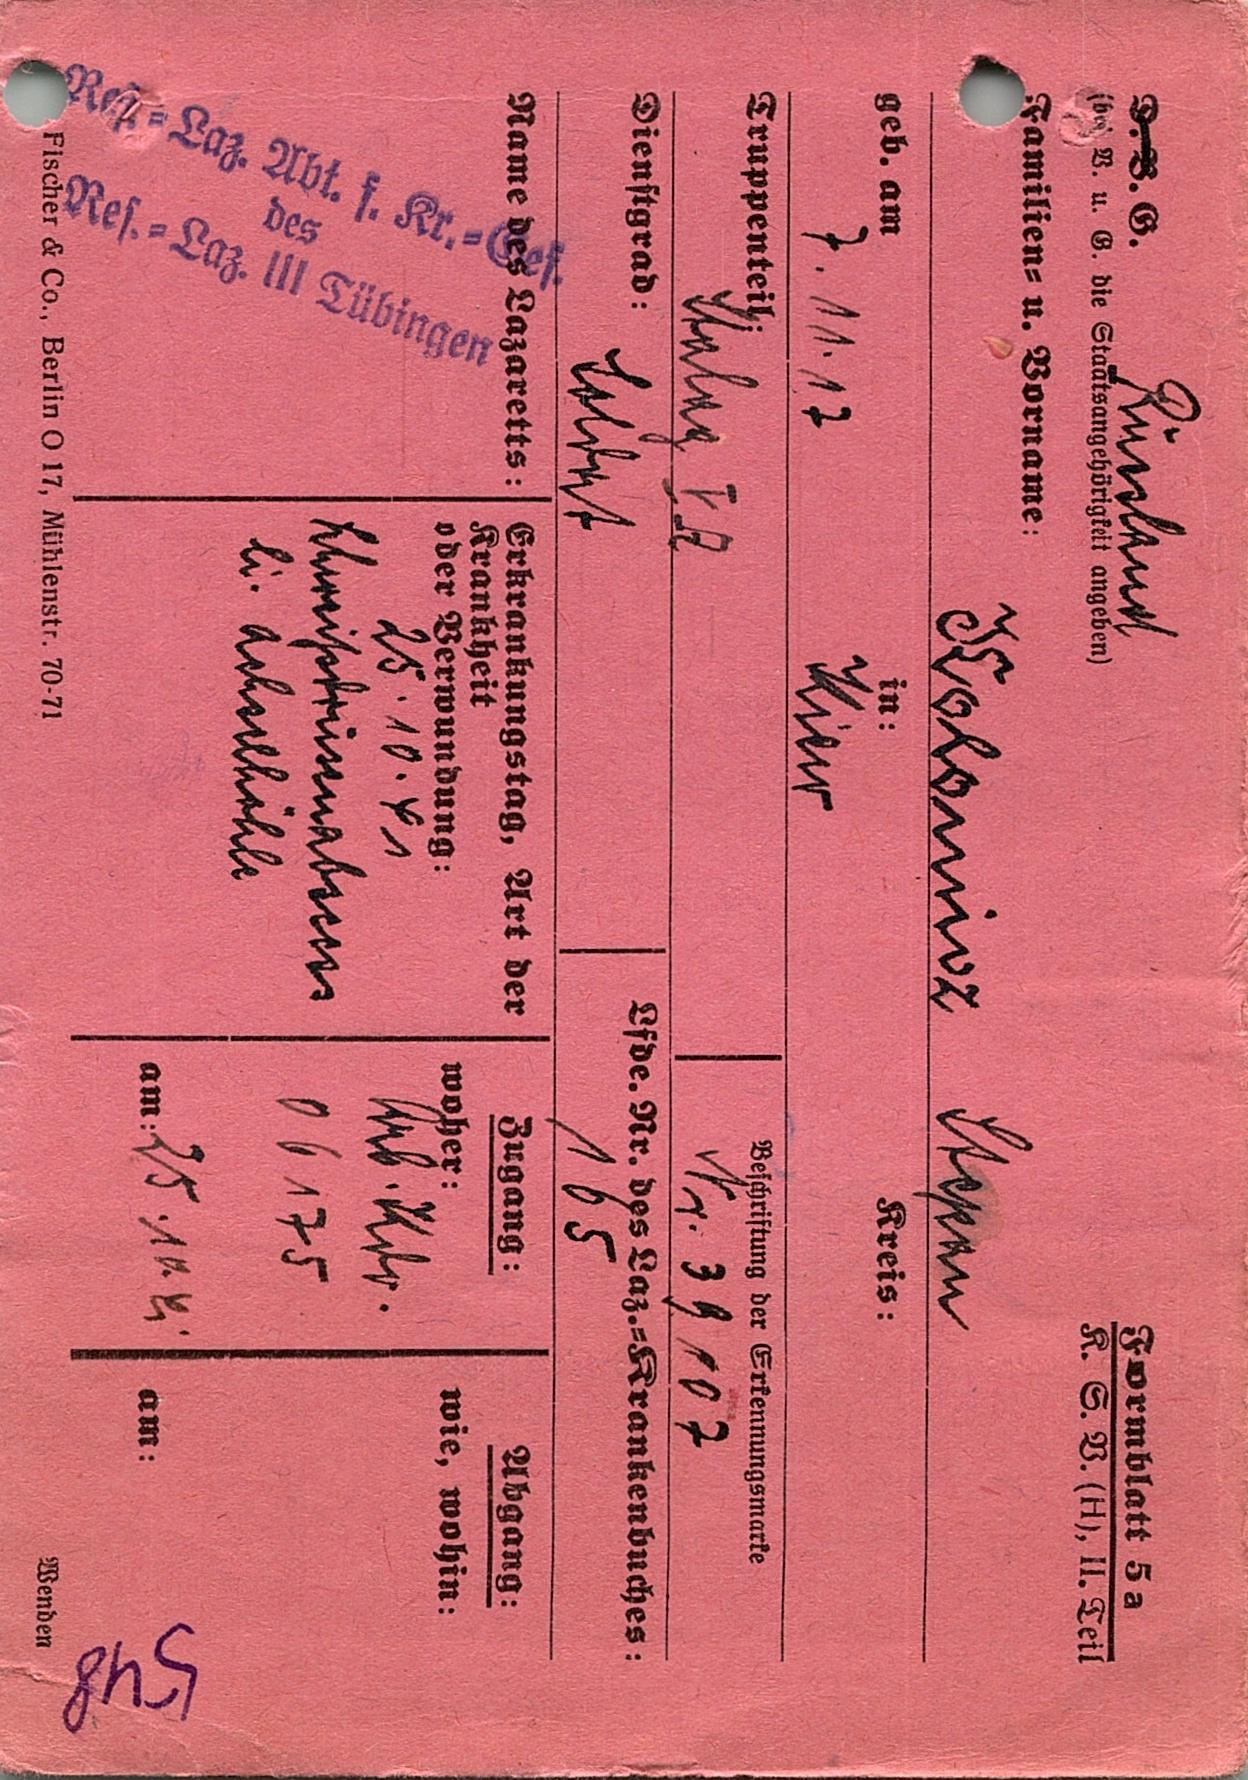 D. B. G. Russland
(bei B. u. G. die Staatsangehörigkeit angeben)
Formblatt 5a
K. S. V. (H), II. Teil
Familien= u. Vorname: Stepan
geb. am 7. 11. 17 in: Kiew Kreis:
Truppenteil: Stalag V A
Beschriftung der Erkennungsmarke
Nr. 39107
Dienstgrad: Soldat
Lfde. Nr. des Laz.=Krankenbuches:
165
Name des Lazaretts:
Res.=Laz. Abt. f. Kr.=Gef.
des
Res.=Laz. III Tübingen
Erkrankungstag, Art der
Krankheit
oder Verwundung:
25. 10. 41
Schweißdrüsenabscess
li. Achselhöhle
Zugang:
woher:
Arb. Kdo.
06175
am: 25. 10. 41
Abgang:
wie, wohin:
am:
Fischer & Co., Berlin O 17, Mühlenstr. 70-71
Wenden
548